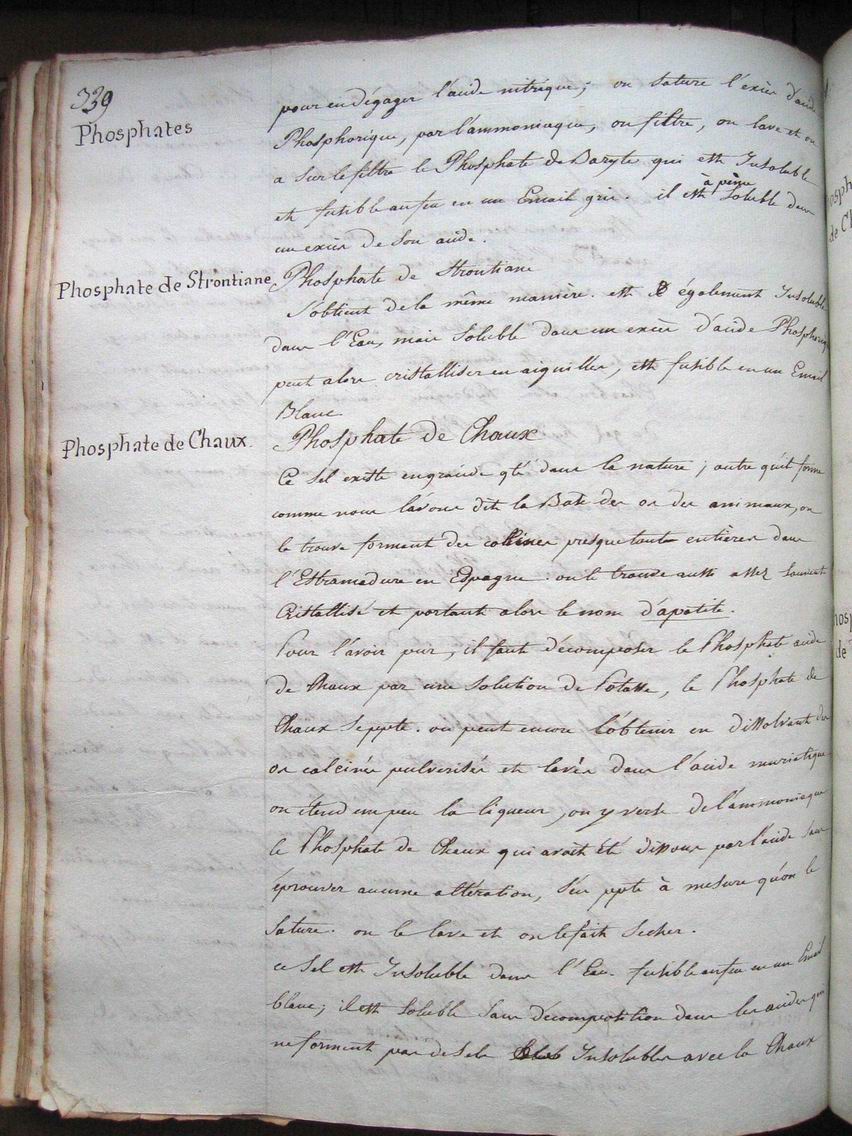 339
Phosphates
pour en dégager l'acide nitrique; on sature l'excès d'acide
Phosphorique, par l'ammoniaque, on filtre, on lave et on
a sur le filtre le Phosphate de Baryte qui est Insoluble
et fusible au feu en un Email gris. il est à peine Soluble dans
un excès de son acide.
Phosphate de Strontiane
Phosphate de Strontiane
S'obtient de la même manière. est également Insoluble
dans l'Eau, mais Soluble dans un excès d'acide Phosphorique
peut alors cristalliser en aiguilles, est fusible en un Email
Blanc
Phosphate de Chaux.
Phosphate de Chaux
Ce Sel existe en grande qté dans la nature; outre qu'il forme
comme nous l'avons dit la Base des os des animaux, on
le trouve formant des collines presque toutes entières dans
l'Estramadure en Espagne: on le trouve aussi assez souvent
Cristallisé et portant alors le nom d'apatite.
Pour l'avoir pur, il faut décomposer le Phosphate acide
de Chaux par une Solution de Potasse, le Phosphate de
Chaux se ppte. on peut encore l'obtenir en dissolvant des
os calcinés pulverisés et lavés dans l'acide muriatique
on etend un peu la liqueur, on y verse de l'ammoniaque
le Phosphate de Chaux qui avait été dissous par l'acide Sans
éprouver aucune altération, s'en ppte à mesure qu'on le
Sature. on le lave et on le fait Secher.
ce Sel est Insoluble dans l'Eau. fusible au feu en un Email
blanc; il est Soluble Sans décomposition dans les acides qui
ne forment pas de Sels Insolubles avec la Chaux